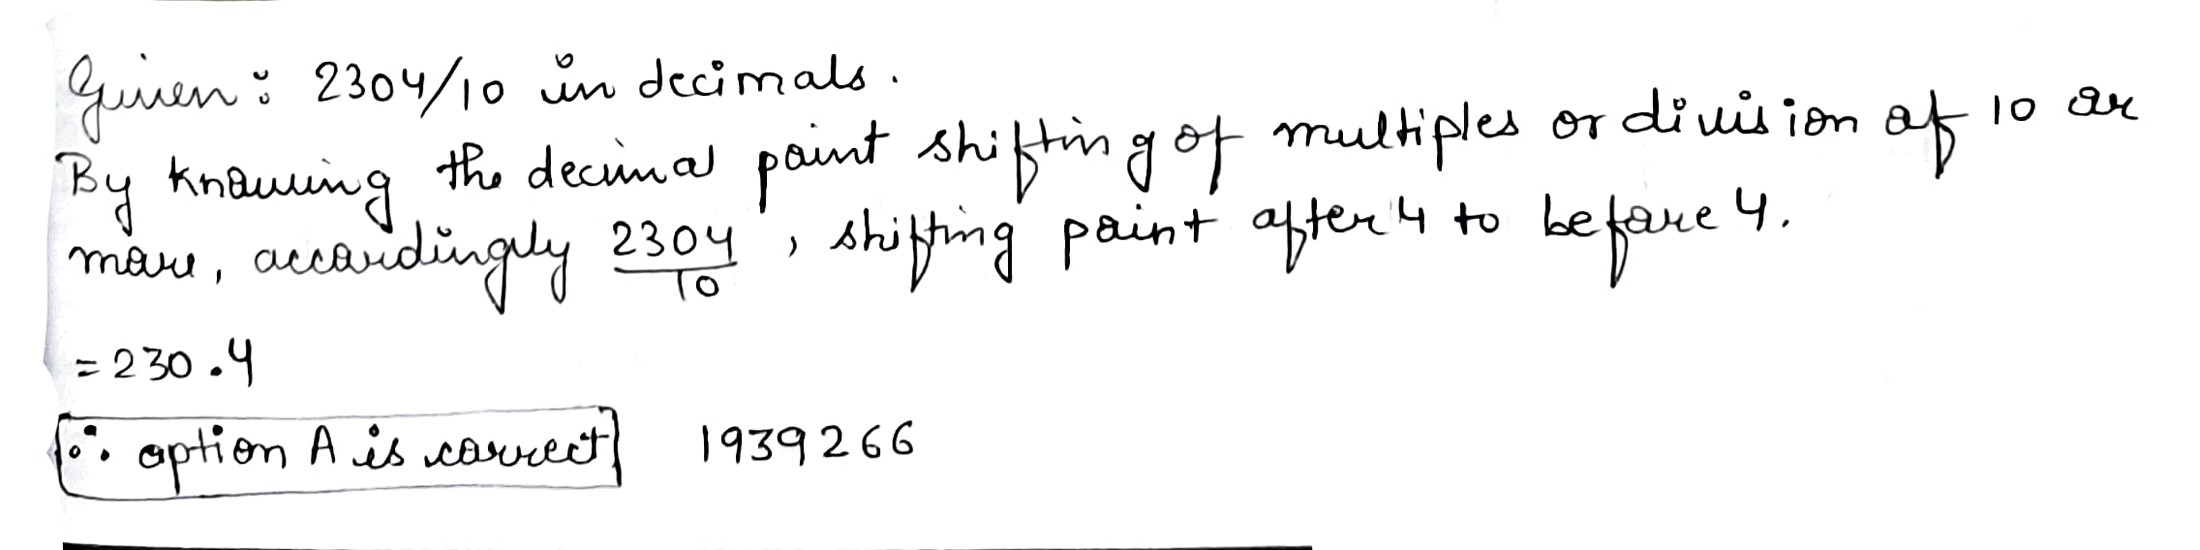 Given: 2304/10 in decimals.
By knowing the decimal point shifting of multiples or division of 10 or
more, accordingly 2304/10, shifting point after 4 to before 4.
= 230.4
∴ option A is correct 1939266